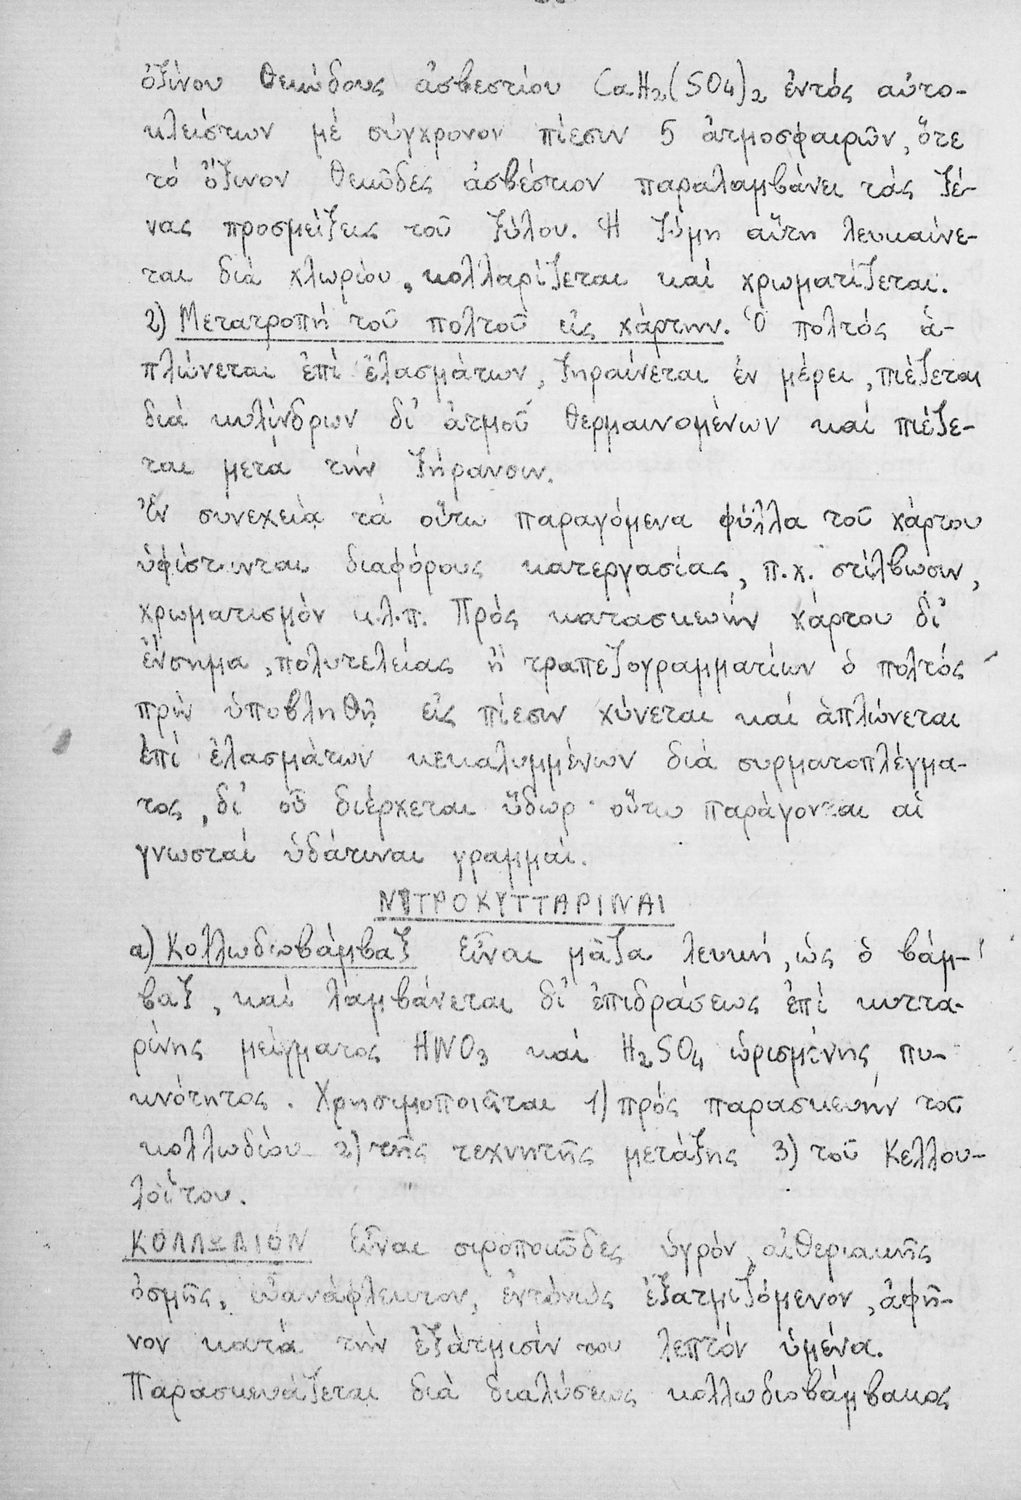 ὀξίνου θειώδους ἀσβεστίου CaH2(SO4)2 ἐντός αὐτο-
κλείστων μέ σύγχρονον πίεσιν 5 ἀτμοσφαιρῶν, ὅτε
τό ὄξινον θειῶδες ἀσβέστιον παραλαμβάνει τάς ξέ-
νας προσμείξεις τοῦ ξύλου. Ἡ ζύμη αὕτη λευκαίνε-
ται διά χλωρίου, κολλαρίζεται καί χρωματίζεται.
2) Μετατροπή τοῦ πολτοῦ εἰς χάρτην. Ὁ πολτός ἁ-
πλώνεται ἐπί ἐλασμάτων, ξηραίνεται ἐν μέρει, πιέζεται
διά κυλίνδρων δι' ἀτμοῦ θερμαινομένων καί πιέζε-
ται μετά τήν ξήρανσιν.
Ἐν συνεχείᾳ τά οὕτω παραγόμενα φύλλα τοῦ χάρτου
ὑφίστανται διαφόρους κατεργασίας, π.χ. στίλβωσιν,
χρωματισμόν κ.λ.π. Πρός κατασκευήν χάρτου δι'
ἔνσημα, πολυτελείας ἤ τραπεζογραμματίων ὁ πολτός
πρίν ὑποβληθῇ εἰς πίεσιν χύνεται καί ἁπλώνεται
ἐπί ἐλασμάτων κεκαλυμμένων διά συρματοπλέγμα-
τος, δι' οὗ διέρχεται ὕδωρ· οὕτω παράγονται αἱ
γνωσταί ὑδάτιναι γραμμαί.
ΝΙΤΡΟΚΥΤΤΑΡΙΝΑΙ
α) Κολλωδιοβάμβαξ Εἶναι μᾶζα λευκή, ὡς ὁ βάμ-
βαξ, καί λαμβάνεται δι' ἐπιδράσεως ἐπί κυττα-
ρίνης μείγματος HNO3 καί H2SO4 ὡρισμένης πυ-
κνότητος. Χρησιμοποιεῖται 1) πρός παρασκευήν τοῦ
κολλωδίου 2) τῆς τεχνητῆς μετάξης 3) τοῦ Κελλου-
λοΐτου.
ΚΟΛΛΩΔΙΟΝ Εἶναι σιροποιῶδες ὑγρόν, αἰθεριακῆς
ὀσμῆς, εὐανάφλεκτον, ἐντόνως ἐξατμιζόμενον, ἀφῆ-
νον κατά τήν ἐξάτμισίν του λεπτόν ὑμένα.
Παρασκευάζεται διά διαλύσεως κολλωδιοβάμβακος